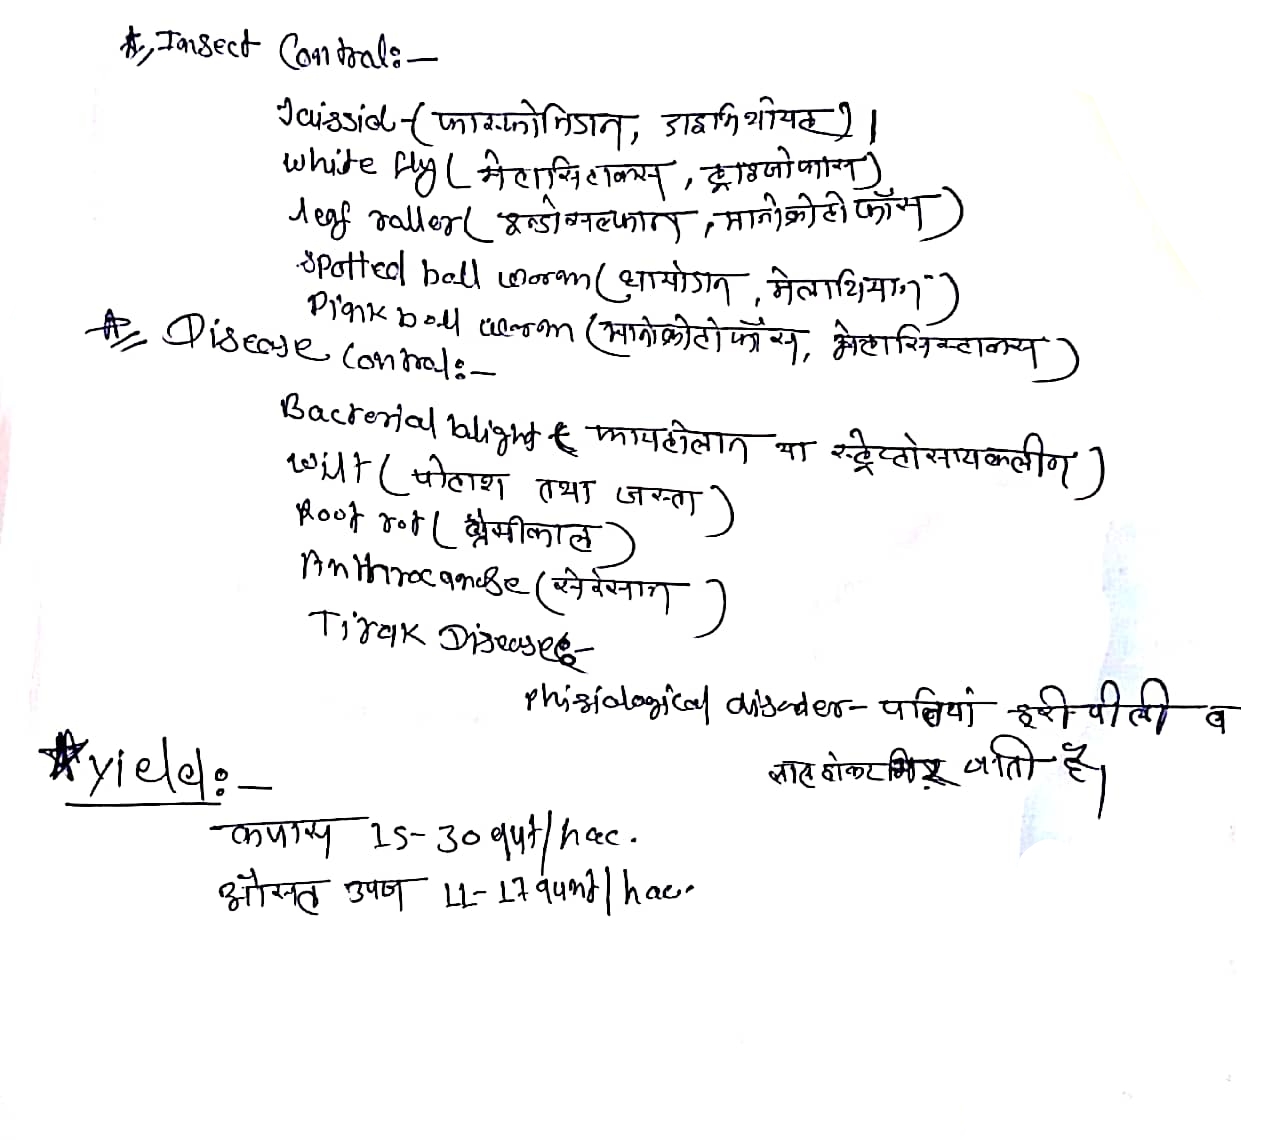 ☆, Insect Contral:-
Jaissid - (फास्फोमिडान, डाइमिथोयट)।
White fly (मेटासिटाक्स, ट्राइजोफास)
leaf raller (इन्डोक्सल्फान, मानोक्रोटोफॉस)
Spotted ball worm (थायोडान, मेलाथियान)
Pink boll worm (मानोक्रोटोफॉस, मेटासिस्टाक्स)
☆ Disease Contral:-
Bacterial blight ( फायटोलान या स्ट्रेप्टोसायकलीन)
Wilt (पोटाश तथा जस्ता)
Root rot (ब्रैसीकाल)
Anthrocanose (सेरेसान)
Tirak Disease:-
Phisiological disorder - पत्तियां हरी पीली व
लाल होकर गिर जाती है।
☆ Yield:-
कपास 15-30 qut/hac.
औसत उपज 11-17 qunt/hac.